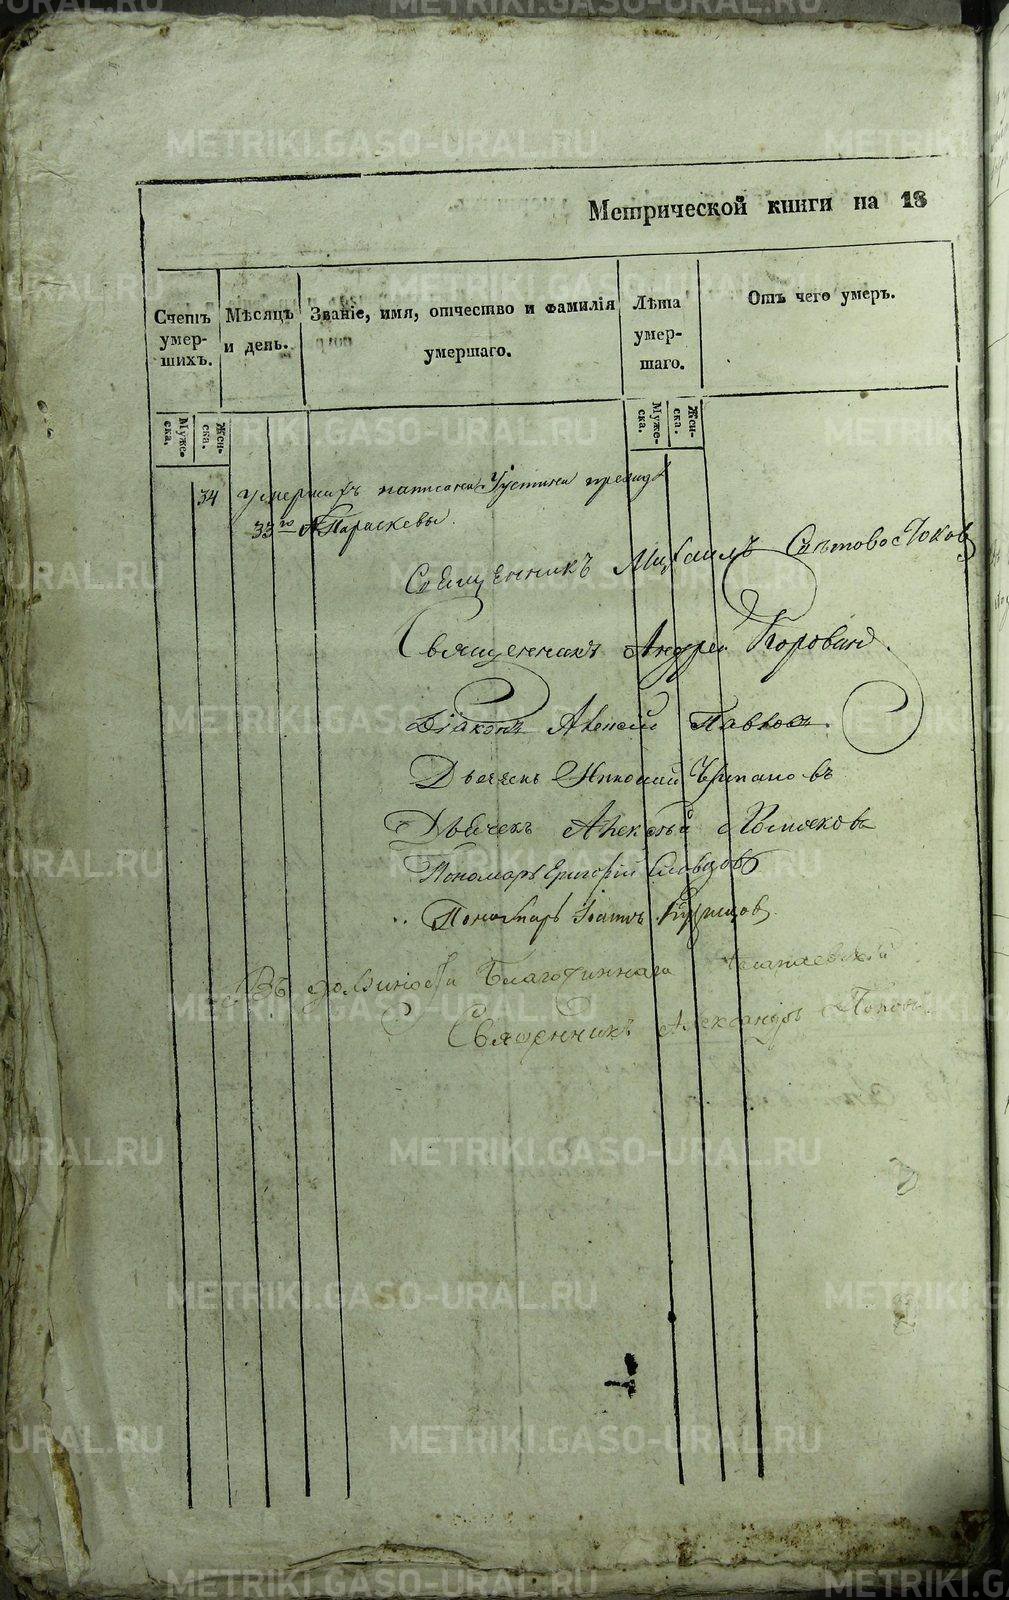 Метрической книги на 18
Счетъ умер- шихъ.
Мѣсяцъ и день.
Званіе, имя, отчество и фамилія умершаго.
Лѣта умер- шаго.
Отъ чего умеръ.
Муже- ска.
Жен- ска.
Муже- ска.
Жен- ска.
34 умершихъ написана Устинья прежде
33го Параскевы.
Священникъ Михаилъ Свѣтовостоковъ
Священникъ Андрей
Діаконъ Алексей Павловъ.
Дьячекъ Николай
Дьячекъ Алексѣй
Пономарь Григорій Словцовъ
Пономарь
Въ должности Благочиннаго
Священникъ Александръ Поповъ.
METRIKI.GASO-URAL.RU